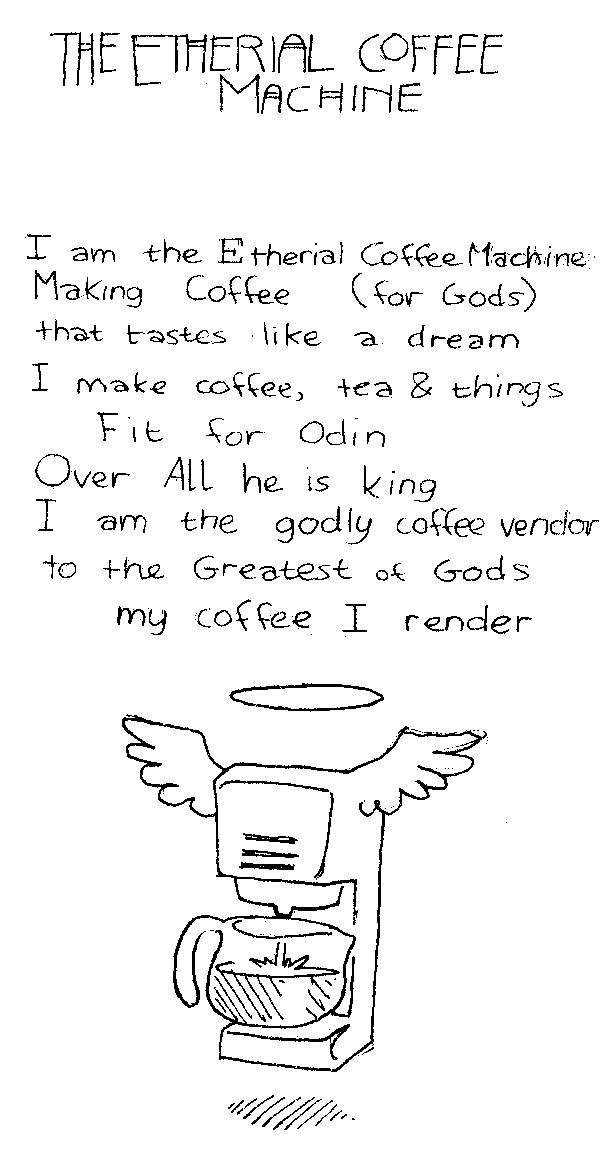 THE ETHERIAL COFFEE
MACHINE
I am the Etherial Coffee Machine
Making Coffee (for Gods)
that tastes like a dream
I make coffee, tea & things
Fit for Odin
Over All he is king
I am the godly coffee vendor
to the Greatest of Gods
my coffee I render